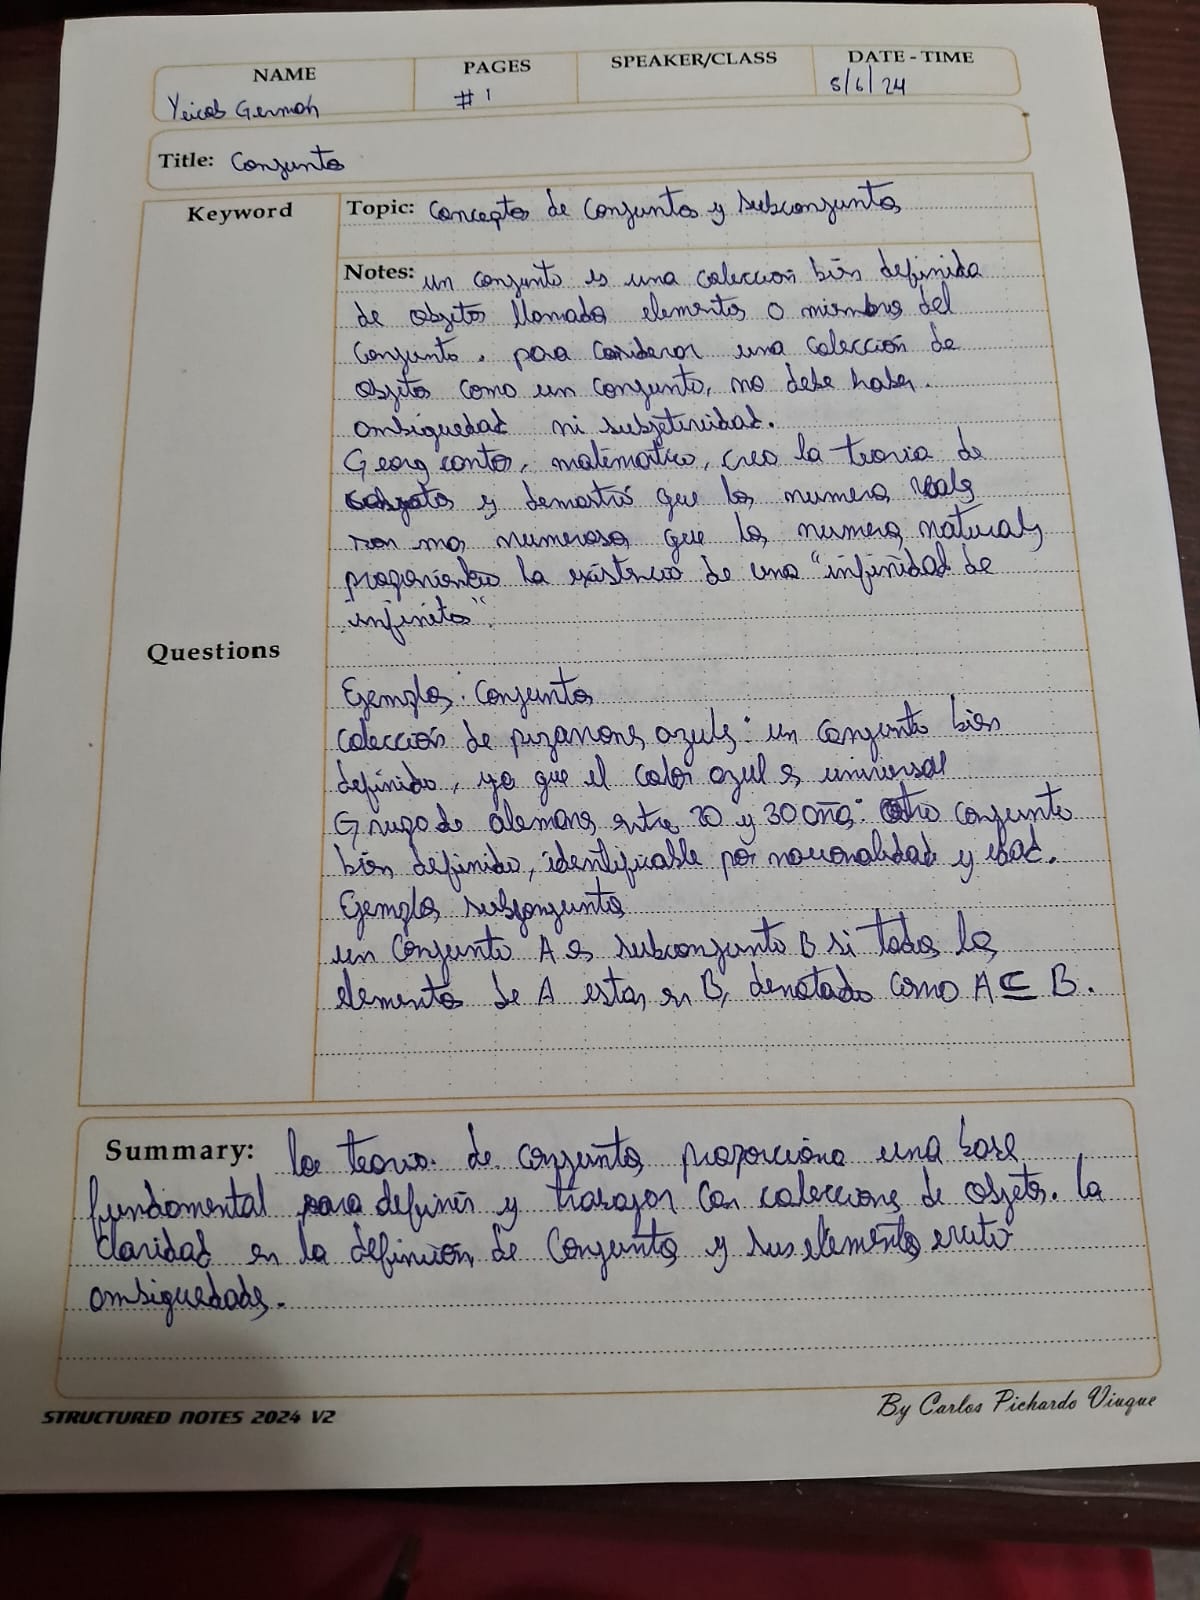 NAME
PAGES
SPEAKER/CLASS
DATE - TIME
Yeicob Germán
# 1
5/6/24
Title: Conjuntos
Keyword
Topic: Conceptos de Conjuntos y subconjuntos
Notes: un conjunto es una colección bien definida
de objetos llamados elementos o miembros del
conjunto. para considerar una colección de
objetos como un conjunto, no debe haber
ambiguedad ni subjetividad.
Georg cantor, matemático, creo la teoria de
conjuntos y demostró que los numeros reales
son mas numerosos que los numeros naturales
proponiendo la existencia de una "infinidad de
infinitos".
Questions
Ejemplos: Conjuntos
colección de pizarrones azules: un conjunto bien
definido, ya que el color azul es universal
Grupo de alemanes entre 20 y 30 años: otro conjunto
bien definido, identificable por nacionalidad y edad.
Ejemplos subconjuntos
un conjunto A es subconjunto B si todos los
elementos de A estan en B, denotado como A ⊆ B.
Summary: la teoria de conjuntos proporciona una base
fundamental para definir y trabajar con colecciones de objetos. la
claridad en la definición de conjuntos y sus elementos evita
ambiguedades.
STRUCTURED NOTES 2024 V2
By Carlos Pichardo Viuque